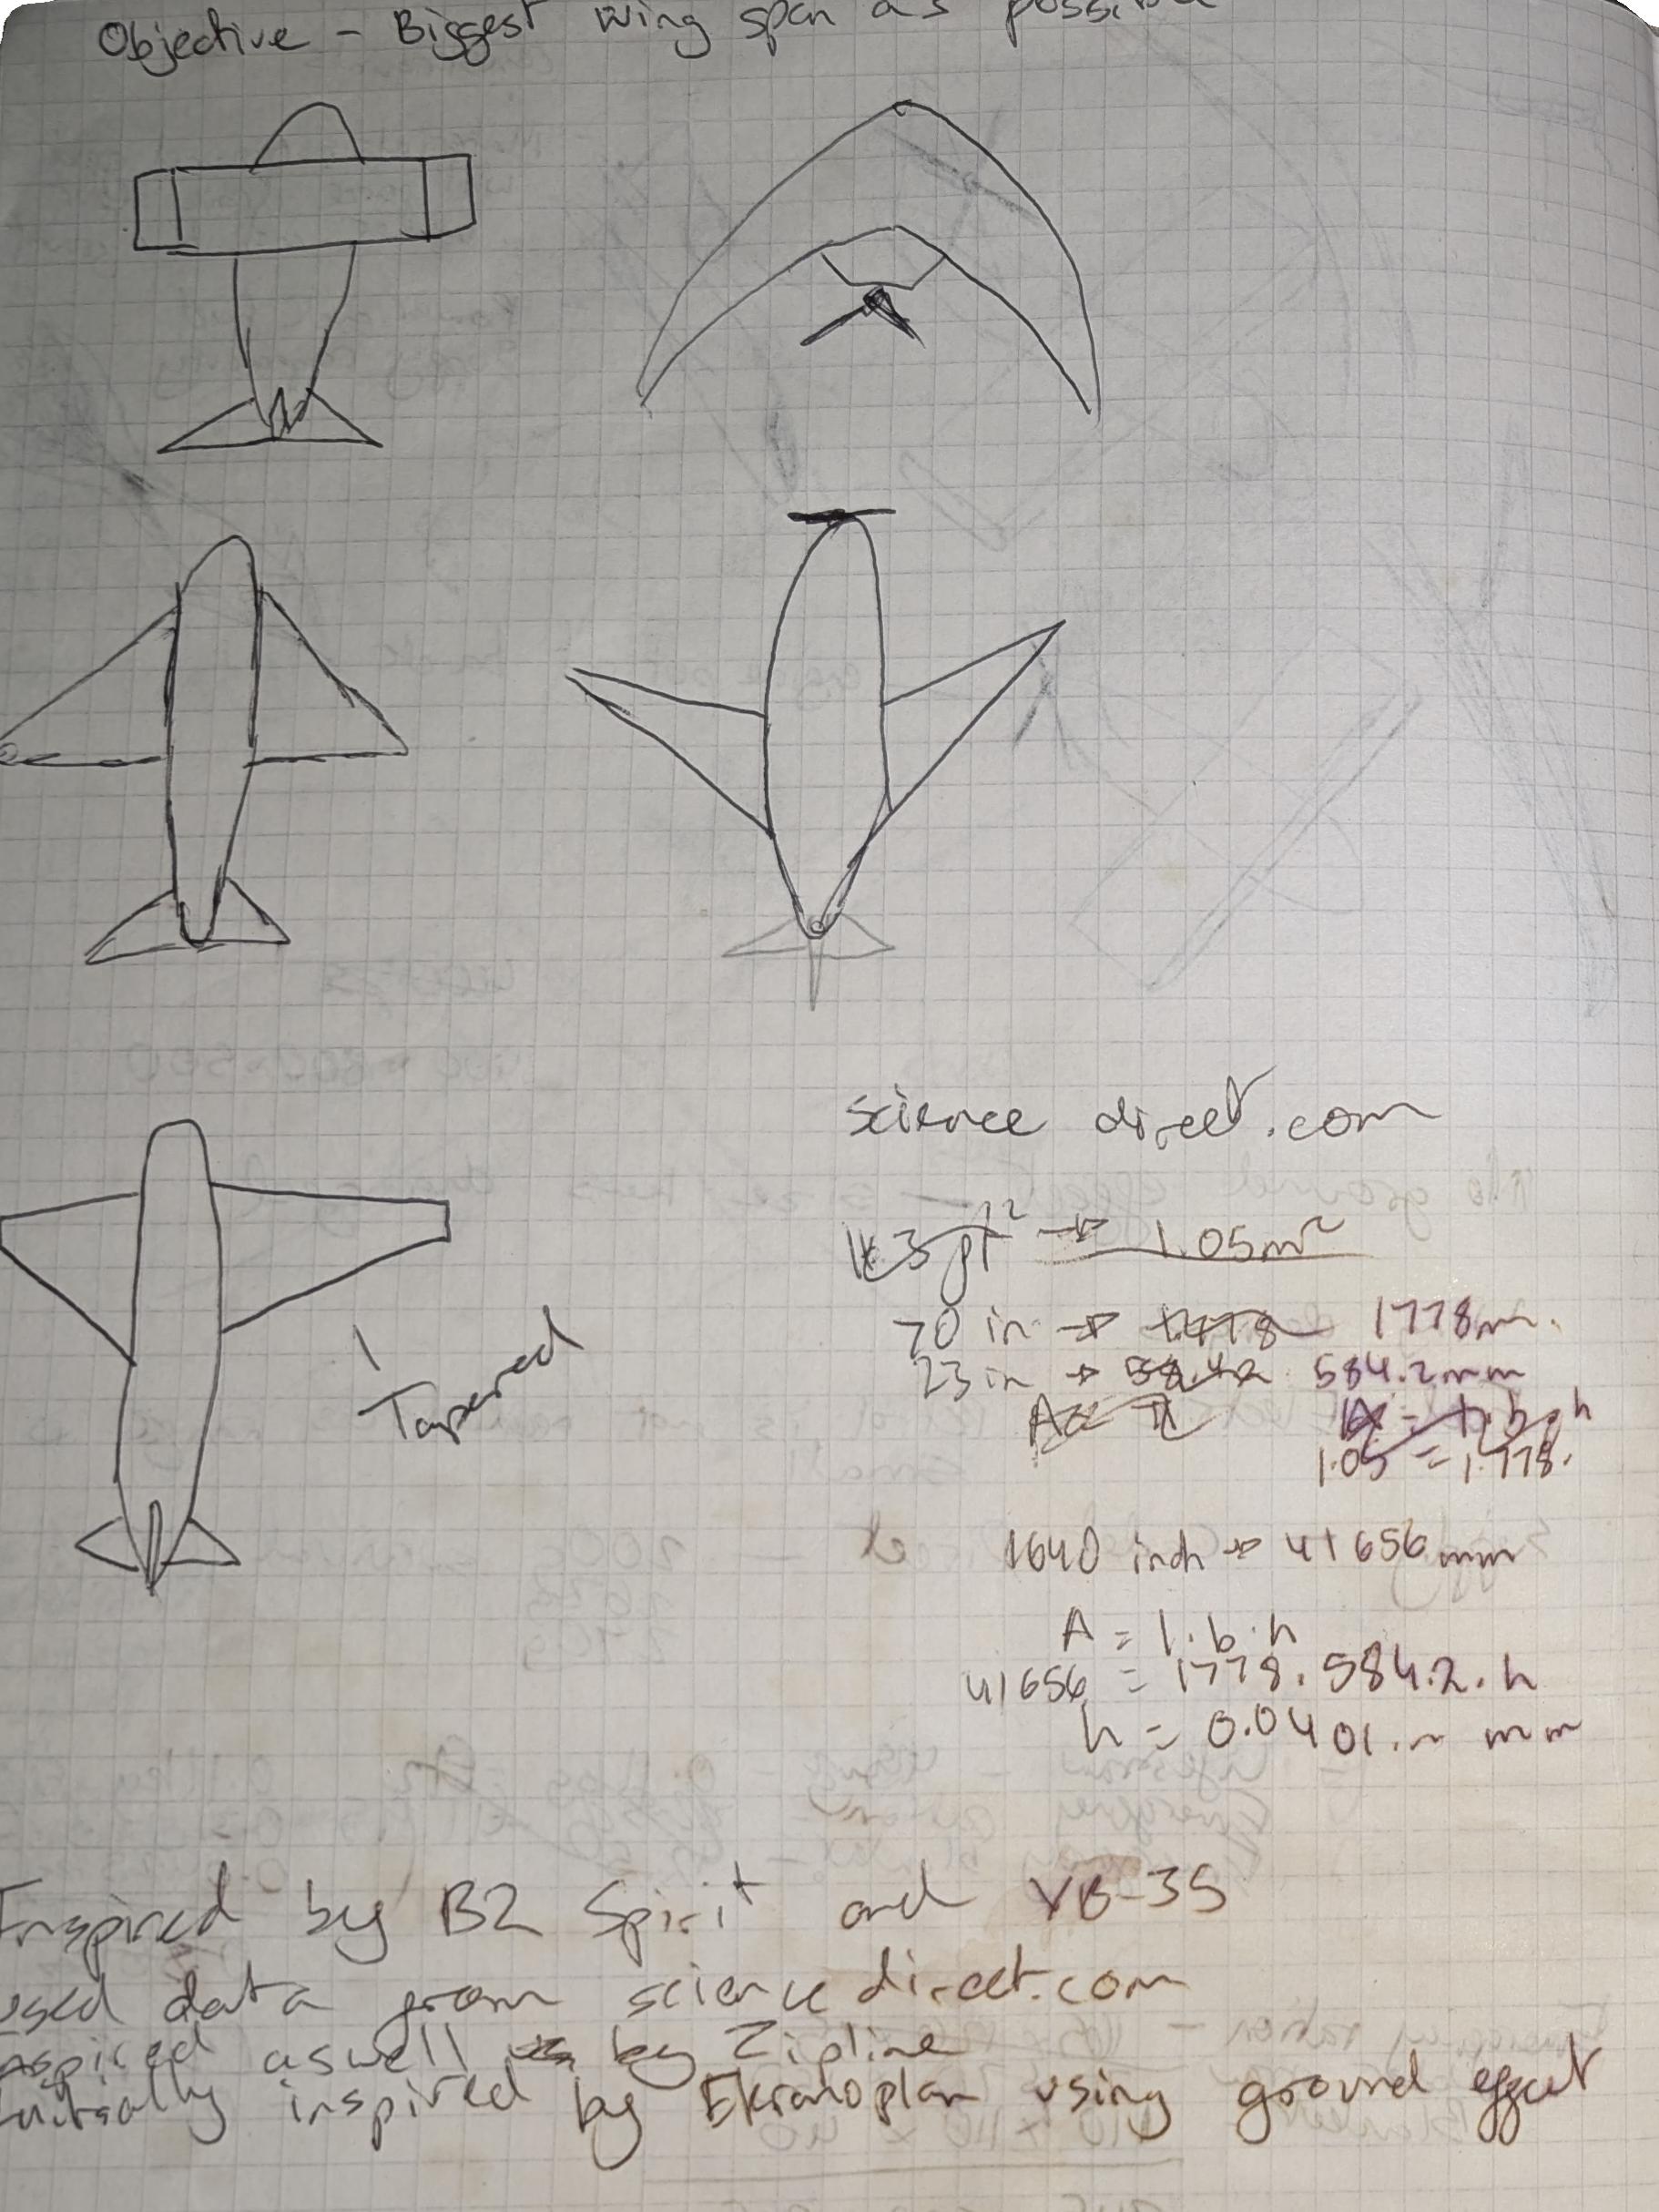 Objective - Biggest wing span as possible
Tapered
science direct.com
ft² → 1.05m²
70 in → 1778m.
23 in → 58.42 584.2mm
A = l.b.h
1.05 = 1.778.
1640 inch → 41656 mm
A = l.b.h
41656 = 1778. 584.2. h
h = 0.0401.. mm
Inspired by B2 Spirit and YB-35
used data from science direct.com
inspired aswell by Zipline
initially inspired by Ekranoplan using ground effect